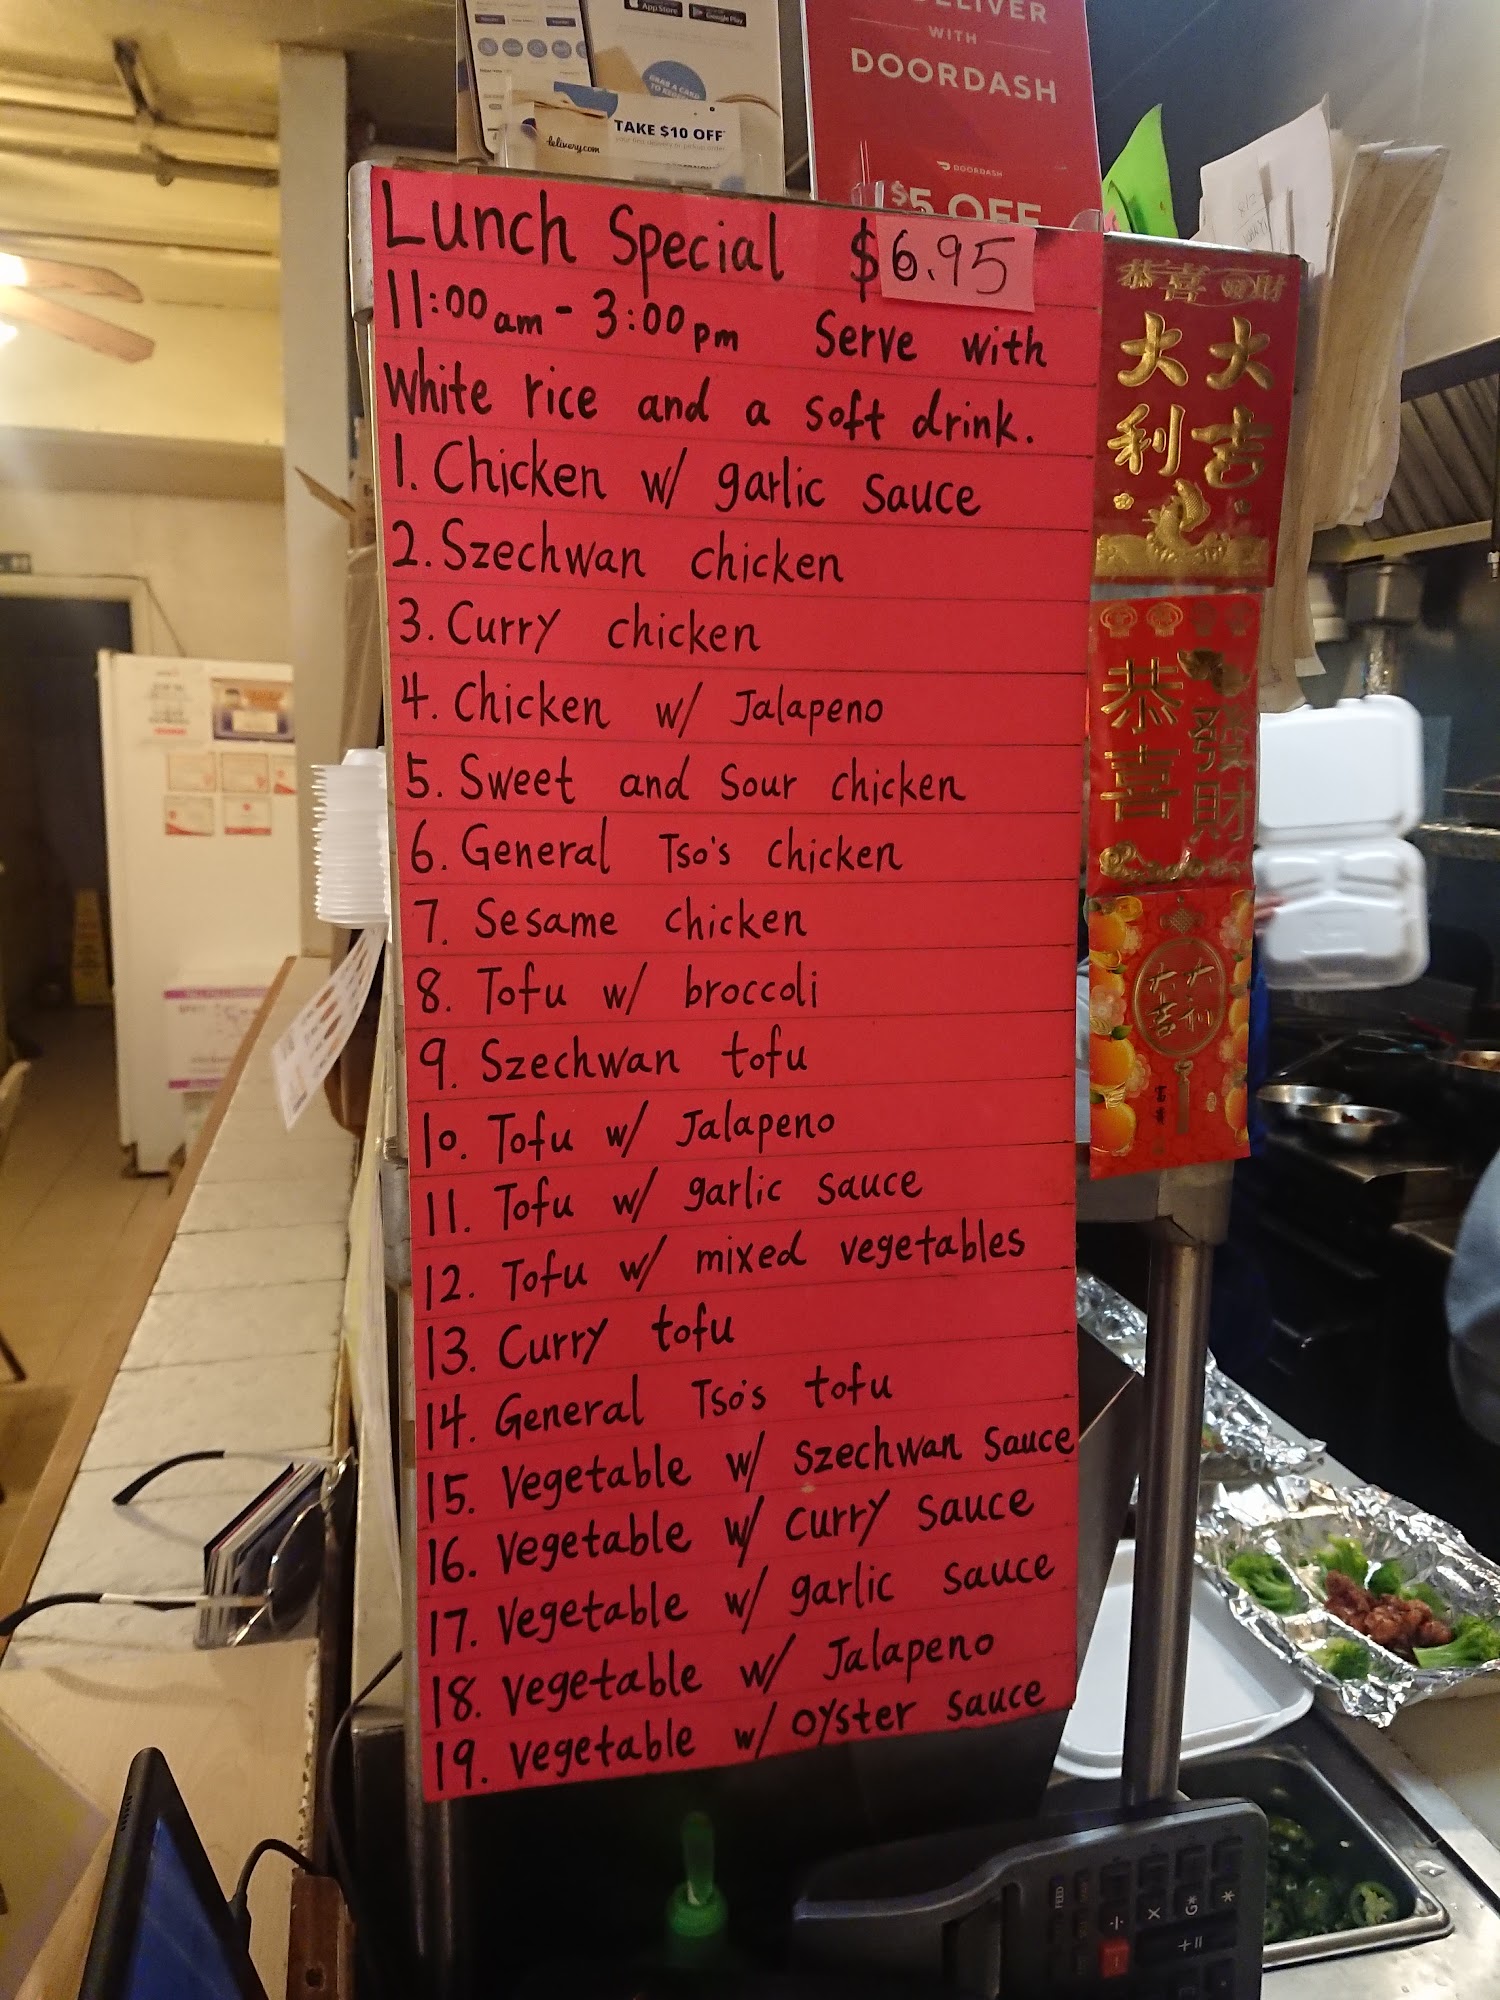 App Store
Google Play
TAKE $10 OFF
delivery.com
DELIVER
WITH
DOORDASH
DOORDASH
$5 OFF
Lunch Special $6.95
11:00am - 3:00pm Serve with
white rice and a soft drink.
1. Chicken w/ garlic sauce
2. Szechwan chicken
3. Curry chicken
4. Chicken w/ Jalapeno
5. Sweet and Sour chicken
6. General Tso's chicken
7. Sesame chicken
8. Tofu w/ broccoli
9. Szechwan tofu
10. Tofu w/ Jalapeno
11. Tofu w/ garlic sauce
12. Tofu w/ mixed vegetables
13. Curry tofu
14. General Tso's tofu
15. Vegetable w/ Szechwan Sauce
16. Vegetable w/ curry sauce
17. Vegetable w/ garlic sauce
18. Vegetable w/ Jalapeno
19. Vegetable w/ oyster sauce
大吉
大利
恭喜
大吉
大利